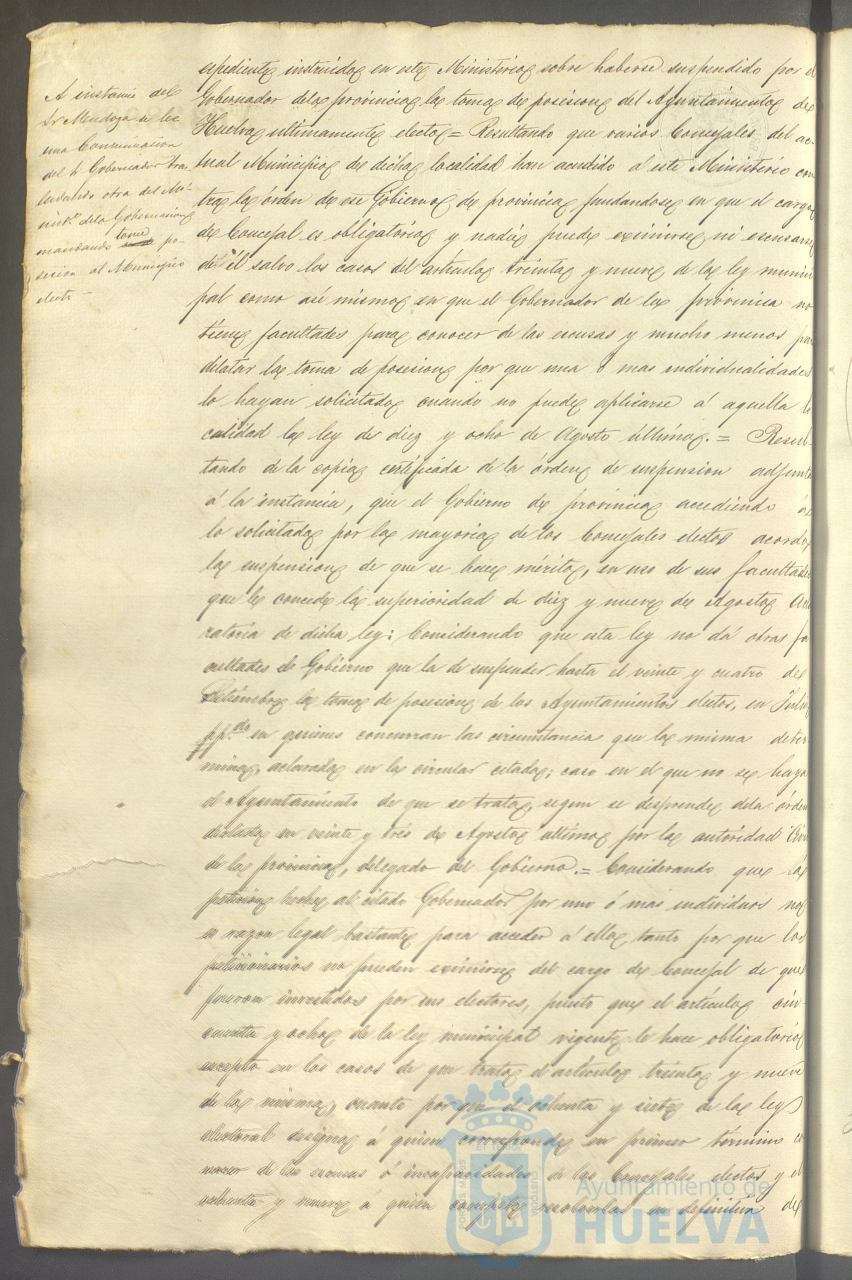 A instancia del
Sr Mendoza se lee
una Comunicacion
del Sr Gobernador tras
ladando otra del Mi-
nistº dela Gobernacion
mandando tome po-
sesion al Municipio
electo
espediente instruido en este Ministerio sobre haberse suspendido por el
Gobernador dela provincia la toma de posesion del Ayuntamiento de
Huelva ultimamente electo = Resultando que varios Concejales del ac-
tual Municipio de dicha localidad han acudido á este Ministerio con
tra la órden de ese Gobierno de provincia, fundandose en que el cargo
de Concejal es obligatorio y nadie puede eximirse ni escusarse
de él salvo los casos del articulo treinta y nueve de la ley munici
pal como asi mismo en que el Gobernador de la provincia no
tiene facultades para conocer de las escusas y mucho menos para
dilatar la toma de posesion por que una ó mas individualidades
lo hayan solicitado cuando no puede aplicarse á aquella lo
calidad la ley de diez y ocho de Agosto último. = Resul-
tando de la copia certificada de la órden de suspension adjunta
á la instancia, que el Gobierno de provincia accediendo á
lo solicitado por la mayoria de los Concejales electos acordó
la suspension de que se hace mérito, en uso de sus facultades
que le concede la superioridad de diez y nueve de Agosto Acla
ratoria de dicha ley: Considerando que esta ley no dá otras fa
cultades al Gobierno que la de suspender hasta el veinte y cuatro de
Setiembre la toma de posesion de los Ayuntamientos electos, en Julio
pp.do en quienes concurran las circunstancias que la misma deter
mina, aclarada en la circular citada; caso en el que no se haya
el Ayuntamiento de que se trata, segun se desprende dela órden
dictada en veinte y tres de Agosto último por la autoridad Civil
de la provincia, delegado del Gobierno. = Considerando que la
peticion hecha al citado Gobernador por uno ó mas individuos no
es razon legal bastante para acceder á ella, tanto por que los
peticionarios no pueden eximirse del cargo de Concejal de que
fueron investidos por sus electores, puesto que el artículo cin-
cuenta y ocho de la ley municipal vigente le hace obligatorio
excepto en los casos de que trata el artículo treinta y nueve
de la misma, cuanto por que el ochenta y siete de la ley
electoral designa á quien corresponde en primer término co
nocer de las escusas ó incapacidades de los Concejales electos y el
ochenta y nueve a quien compete resolverlas en definitiva de
Ayuntamiento de
HUELVA